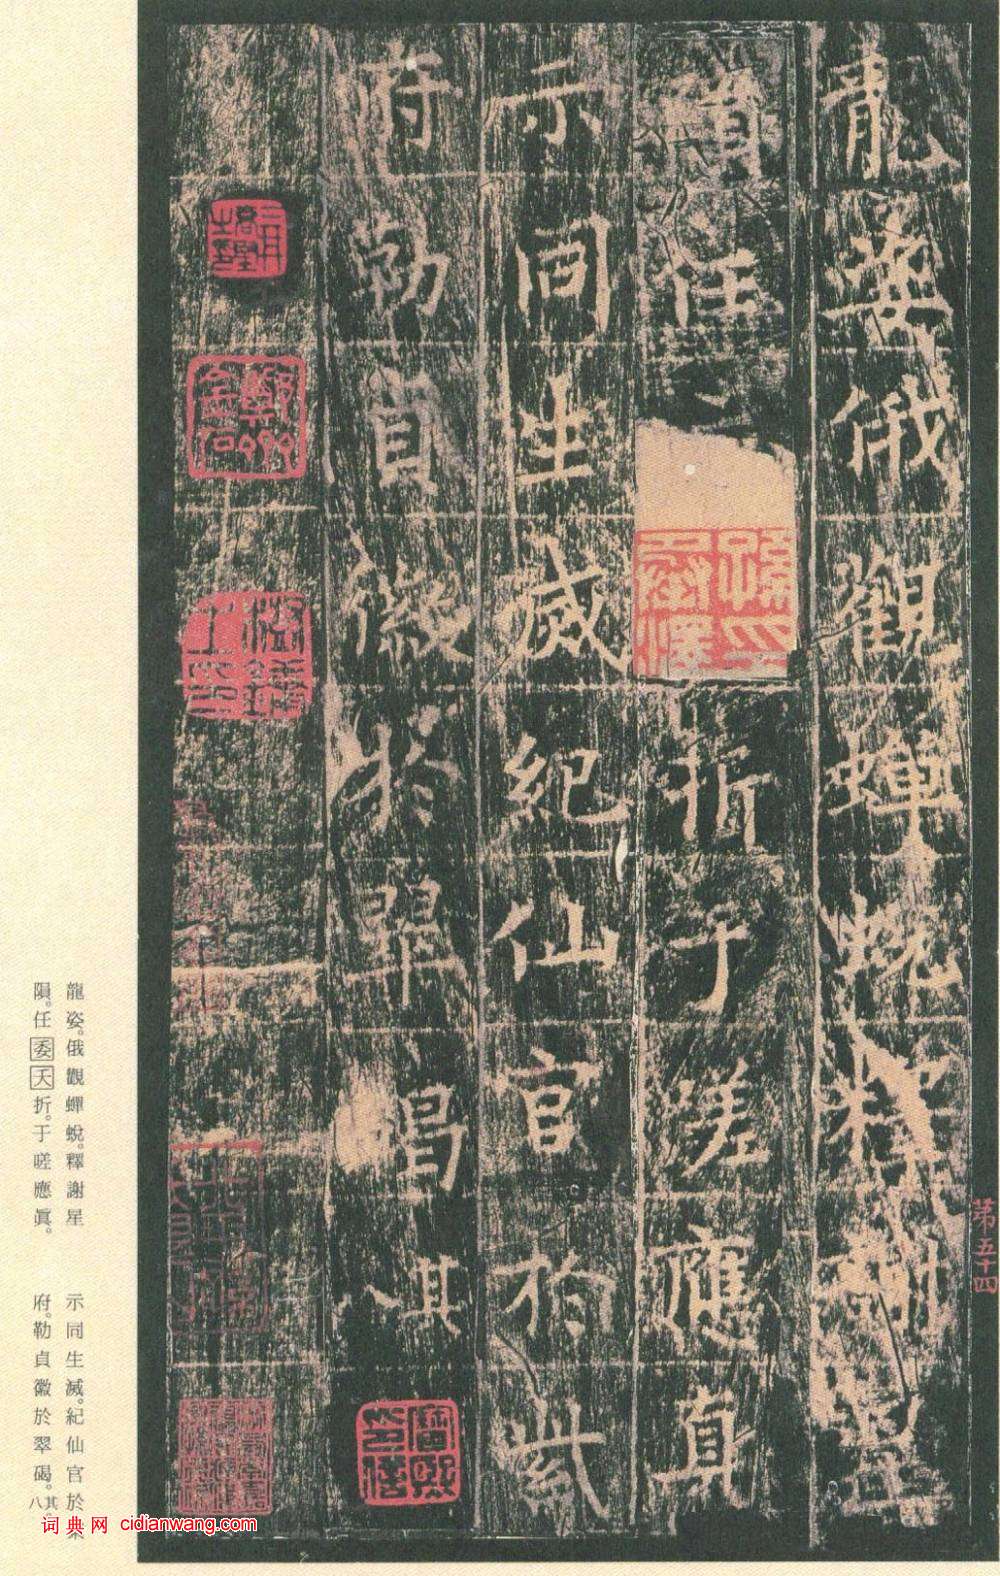 龍姿俄觀蟬蛻釋謝星
隕任折于嗟應真
示同生滅紀仙官於紫
府勒貞徽於翠碣其八
第五十四
龍姿。俄觀蟬蛻。釋謝星
隕。任委天折。于嗟應眞。
示同生滅。紀仙官於
府。勒貞徽於翠碣。其八
词典网 cidianwang.com